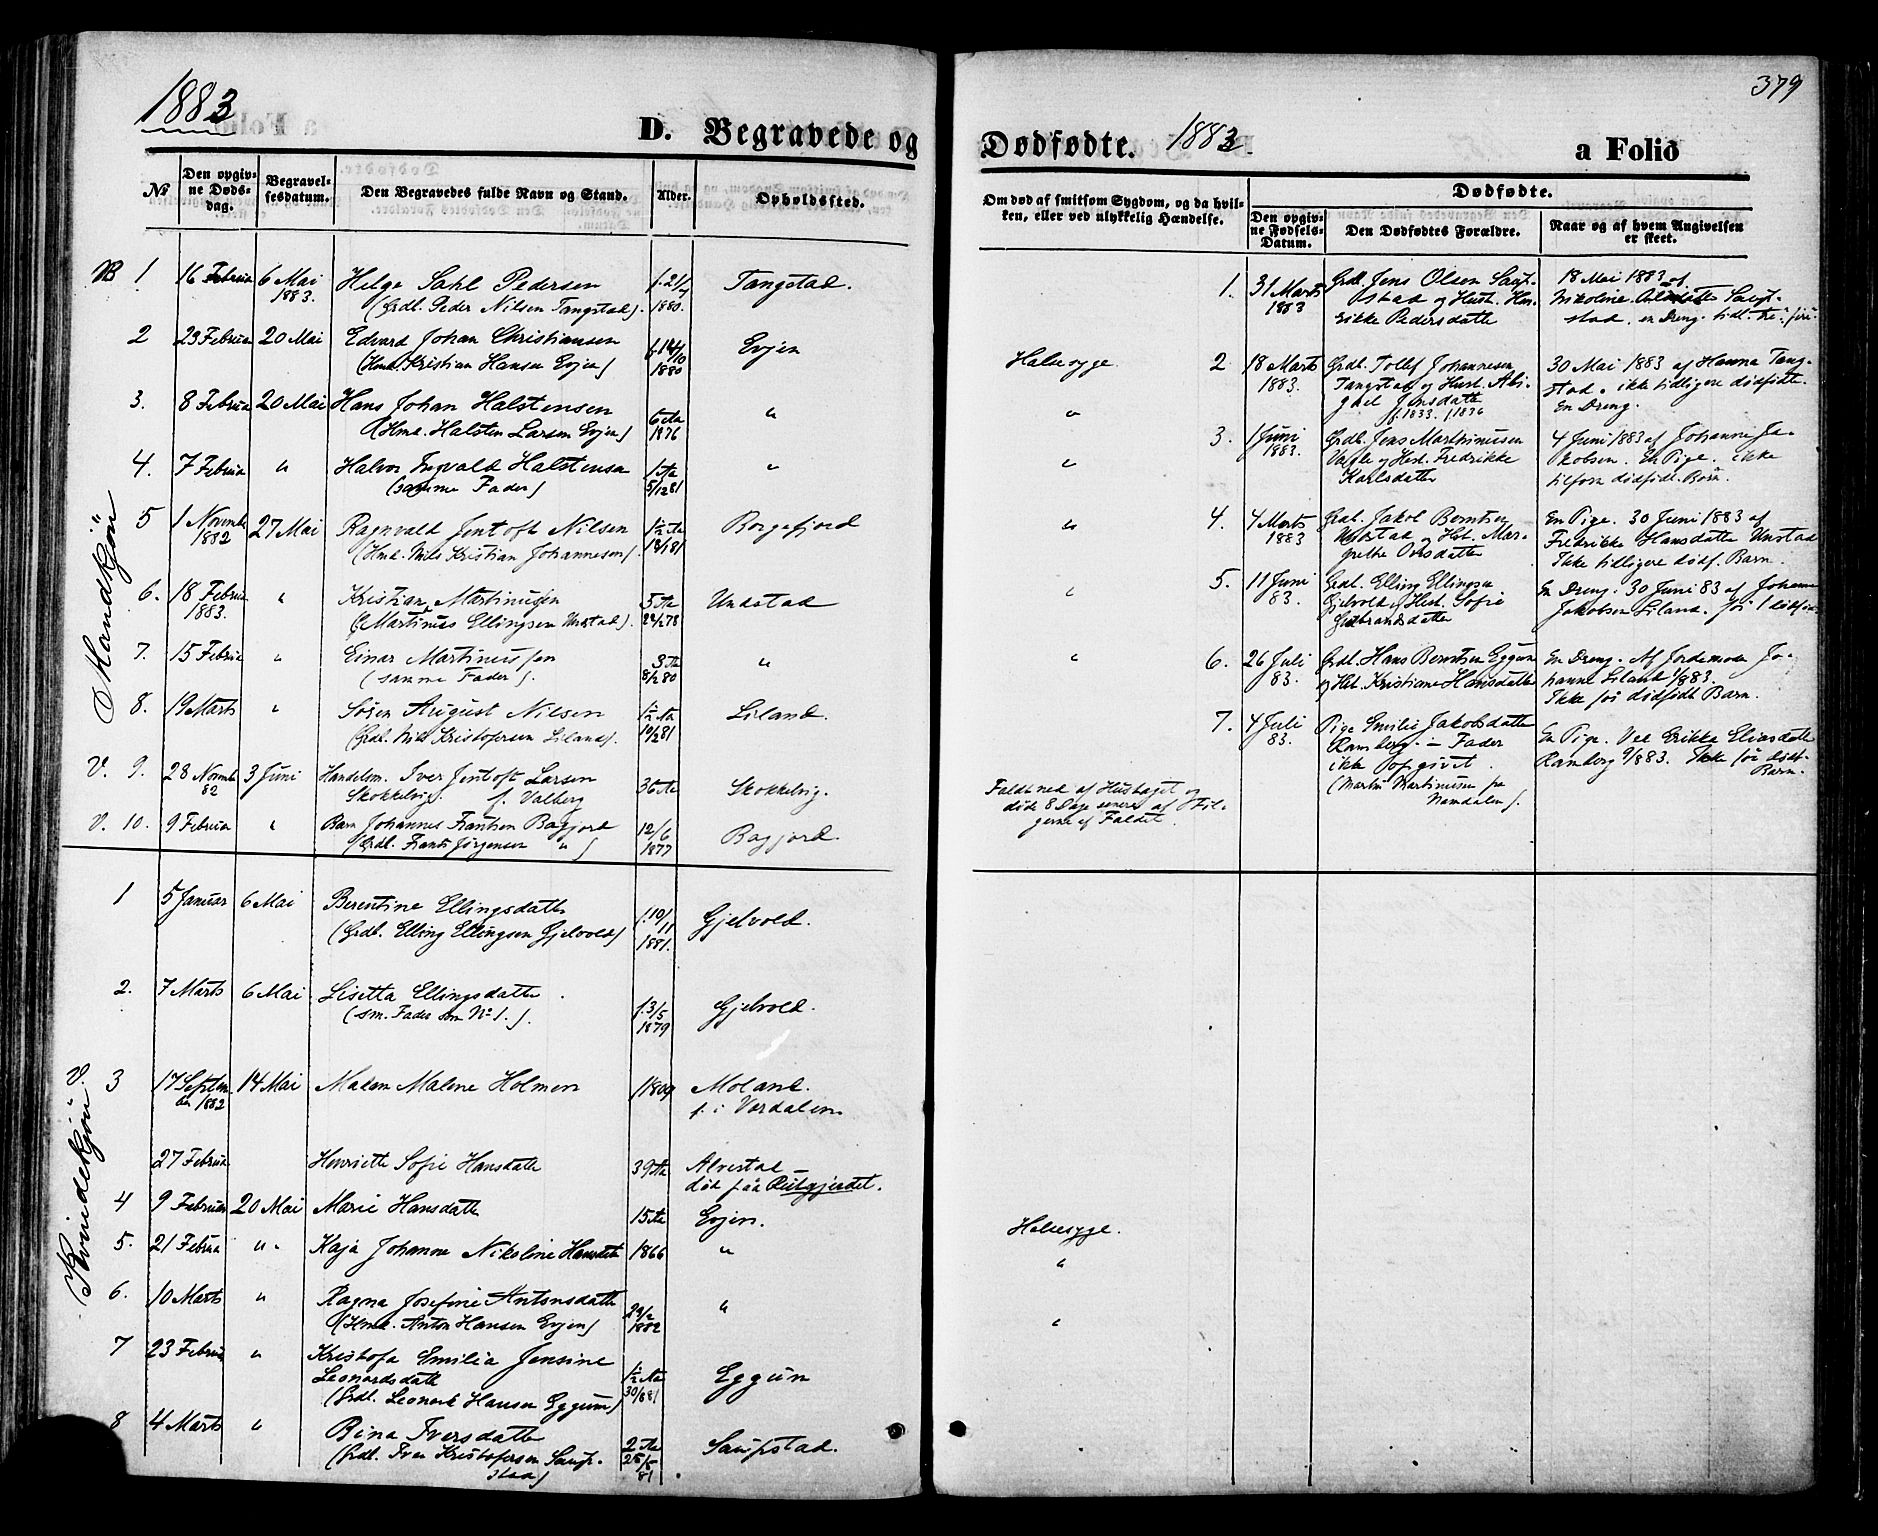 1883
D. Begravede og
№
Den opgivne Dødsdag.
Begravelsesdatum.
Den Begravedes fulde Navn og Stand.
Alder.
Opholdssted.
Mandkjøn
1 16 Februar 6 Mai 1883. Helge Sahl Pedersen f. 21/7 1880. Tangstad.
(Grdl. Peder Nilsen Tangstad).
2 23 Februar 20 Mai Edvard Johan Christiansen f. 14/10 1880 Evjen
(Hmd. Kristian Hansen Evjen)
3. 8 Februar 20 Mai Hans Johan Halstensen 6 Aa 1876 "
(Hmd. Halsten Larsen Evjen)
4. 7 Februar " Halvor Ingvald Halstensen 1 Aa 5/12 81 "
(samme Fader)
5 1 Novemb 1882 27 Mai Ragnvald Jentoft Nilsen 1½ Aa 18/1 81 Borgefjord
(Hmd. Nils Kristian Johannesen)
6. 18 Februar 1883. " Kristian Martinussen 5 Aa 22/2 78 Undstad
(Martinus Ellingsen Unstad).
7. 15 Februar " Einar Martinussen 3 Aa 8/2 80 "
(samme Fader).
8. 19 Marts " Søren August Nilsen 1½ Aa 10/2 81 Liland.
(Grdl. Nils Kristofersen Liland).
V. 9. 28 Novemb 82 3 Juni Handelsm. Iver Jentoft Larsen 36 Aa Skokkelvig.
Skokkelvig. f. Valberg
V. 10. 9 Februar " Barn Johannes Frantsen Bøgjord 12/6 1877 Bøgjord.
(Grdl. Frants Jørgensen ")
Kvindekjøn
1 5 Januar 6 Mai Berentine Ellingsdatter f. 10/11 1881. Gjelvold.
(Grdl. Elling Ellingsen Gjelvold)
2. 7 Marts 6 Mai Lisetta Ellingsdatter f. 3/5 1879 Gjelvold.
(sm. Fader som No 1.).
V. 3 17 September 1882 14 Mai Maren Malene Holmen 1809 Moland.
f. i Værdalen
27 Februar Henriette Sofie Hansdatter 39 Aa Alvestad
død paa
4 9 Februar 20 Mai Marie Hansdatter 15 Aa Evjen.
5. 21 Februar " Kaja Johanna Nikoline Hansdat 1866 "
6. 10 Marts " Ragna Josefine Antonsdatter 22/2 1882 "
(Hmd. Anton Hansen Evjen)
7 23 Februar " Kristofa Emilia Jensine
Leonardsdatter 1½ Aa 30/8 81 Eggum
(Grdl. Leonard Hansen Eggum)
8 4 Marts " Bina Iversdatter 2 Aa 25/5 81 Saupstad.
(Grdl. Iver Kristofersen Saupstad)
379
Dødfødte. 1883. a Folio
Om død af smitsom Sygdom, og da hvilken, eller ved ulykkelig Hændelse.
Dødfødte.
Den opgivne Fødsels-Datum.
Den Dødfødtes Forældre.
Naar og af hvem Angivelsen er skeet.
Halssyge.
"
"
"
"
"
Faldt ned af Hustaget og
døde 8 Dage senere af Følgerne af Faldet.
Halssyge.
"
"
1. 31 Marts 1883
Grdl. Jens Olsen Saupstad og Hust. Henrikke Pedersdatter
18 Mai 1883 af
Nikoline Saupstad. en Dreng. tidl.
2 18 Marts 1883.
Grdl. Tollef Johannesen
Tangstad og Hust. Abigael Jensdatter
f. 1833. f. 1836
30 Mai 1883 af Hanna Tangstad. ikke tidligere dødfødte.
En Dreng.
3. 1 Juni 1883.
Grdl. Jens Marthinussen
og Hst. Fredrikke
Karlsdatter
4 Juni 1883 af Johanne Jakobsen. En Pige. ikke
tilforn dødfødt Barn.
4. 4 Marts 1883
Grdl. Jakob Berntsen
Unstad og Hst. Margrethe Olsdatter
En Pige. 30 Juni 1883 af
Fredrikke Hansdatter Unstad
Ikke tidligere dødf. Barn.
5. 11 Juni 83.
Grdl. Elling Ellingsen
Gjelvold og Hst. Sofie
Gulbrandsdatter
En Dreng. 30 Juni 83 af Johanne
Jakobsen Liland. før 1 dødfødt
6. 26 Juli 83.
Grdl. Hans Berntsen Eggum
og Hst. Kristiane Hansdatter
En Dreng. Af Jordemoder Johanne Liland 1/8 83.
Ikke før dødfødt Barn.
7. 4 Juli 83.
Pige Emilie Jakobsdatter
Ramberg. – Fader
ikke opgivet.
(Martin Martinusen fra
Namdalen).
En Pige. Ved Erikke Eliasdatter
Ramberg 9/8 83. Ikke før dødf.
Barn.